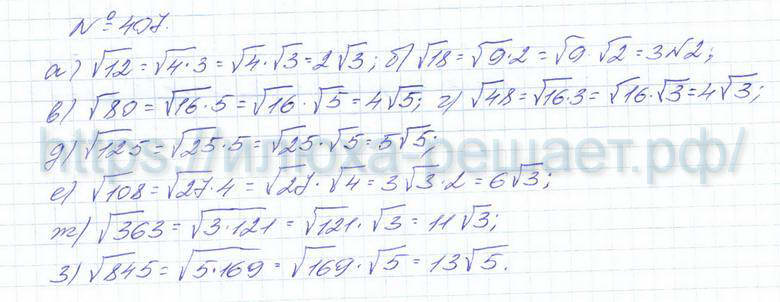 № 407.
а) √12 = √4·3 = √4·√3 = 2√3; б) √18 = √9·2 = √9·√2 = 3√2;
в) √80 = √16·5 = √16·√5 = 4√5; г) √48 = √16·3 = √16·√3 = 4√3;
д) √125 = √25·5 = √25·√5 = 5√5;
https://илюха-решает.рф/
е) √108 = √27·4 = √27·√4 = 3√3·2 = 6√3;
ж) √363 = √3·121 = √121·√3 = 11√3;
з) √845 = √5·169 = √169·√5 = 13√5.